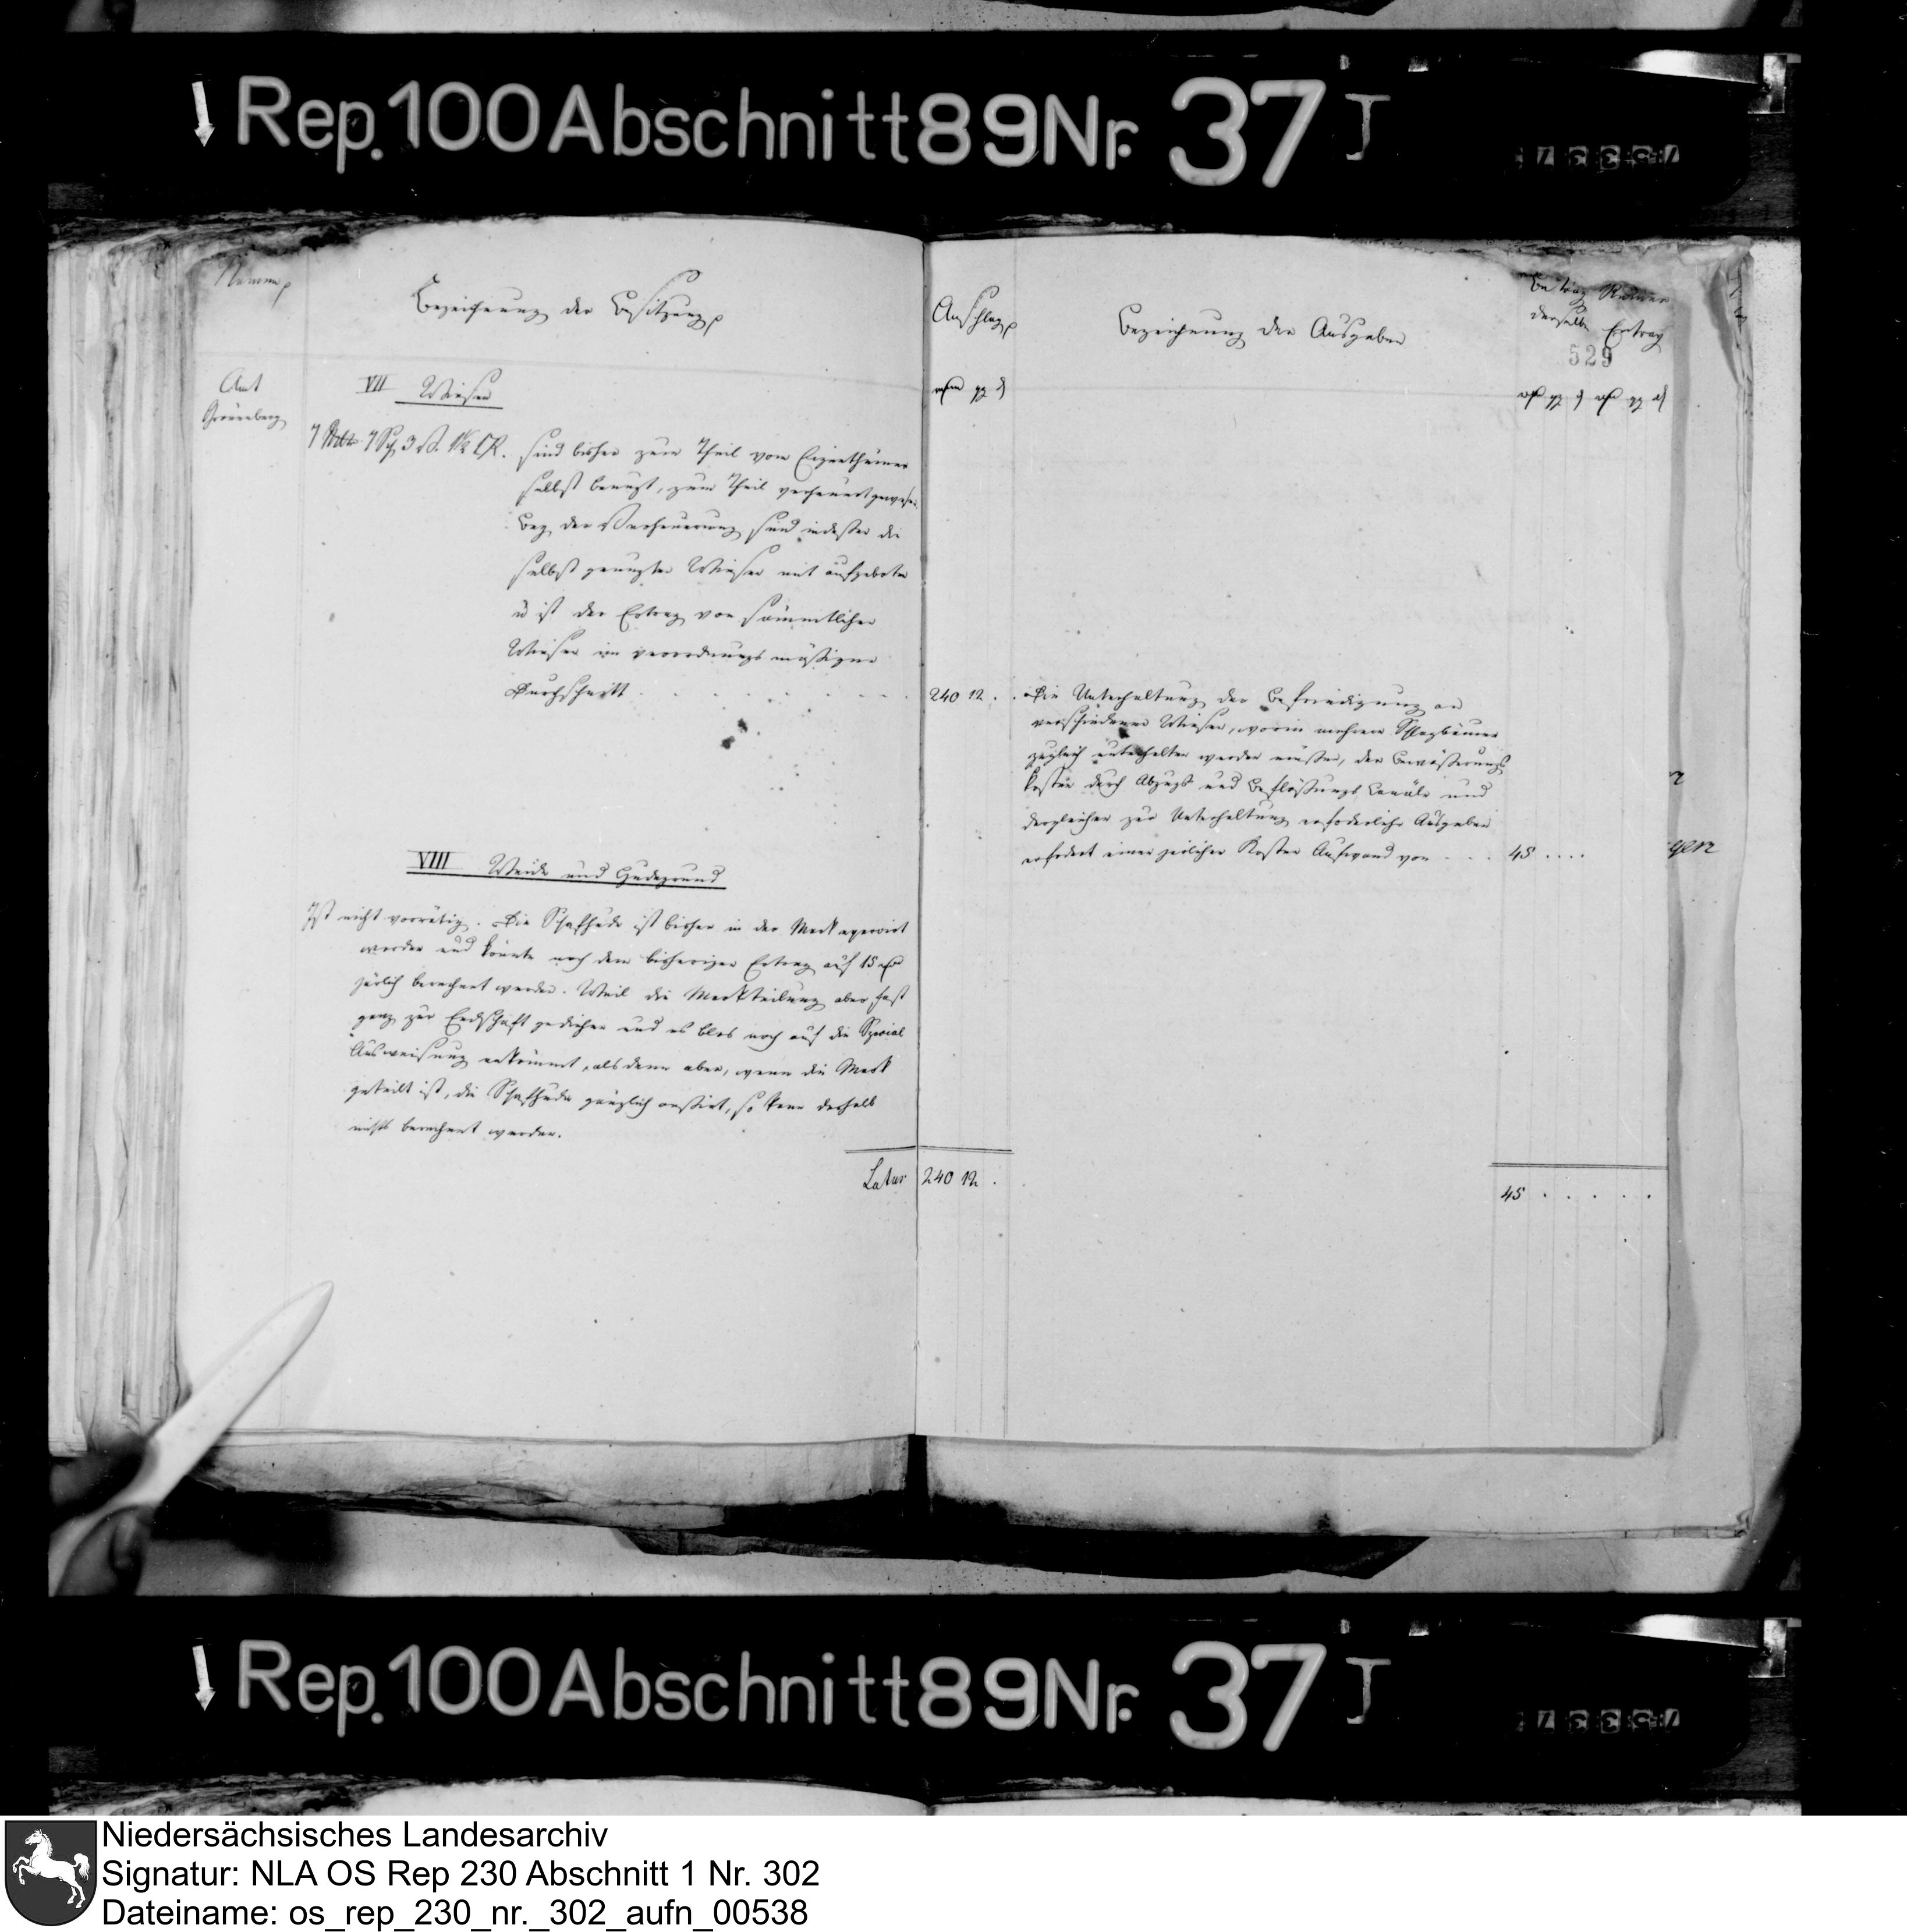 Rep. 100 Abschnitt 89 Nr. 37 J
Bezeichnung der Besitzung
Anschlag
Bezeichnung der Ausgaben
Betrag Reiner
derselben Ertrag
529
Amt
Grönenberg
VII Wiesen
sind bisher zum Theil vom Eigenthümer
selbst benuzt, zum Theil verheuert gewesen.
Bey der Verheuerung sind indeßen die
selbst genuzten Wiesen mit aufgeboten
u ist der Ertrag von sämmtlichen
Wiesen im verordnungsmäßigen
Durchschnitt
240 12
Die Unterhaltung der Befriedigung an
verschiedenen Wiesen, worin mehrere Schlagbäume
zugleich unterhalten werden müßen, der Bewäßerungs
Kosten durch Abzugs und Beflößungs Canäle und
dergleichen zur Unterhaltung erforderliche Ausgaben
erfodert einen järlichen Kosten Aufwand von
45
VIII Weide und Hudegrund
Ist nicht vorrätig. Die Schafhude ist bisher in der Mark exercirt
worden und könnte nach dem bisherigen Ertrag auf 15
järlich berechnet werden. Weil die Markteilung aber fast
ganz zur Endschaft gediehen und es blos noch auf die Special
Ausweisung ankömmt, alsdann aber, wenn die Mark
geteilt ist, die Schafhude gänzlich ceßirt, so kann deshalb
nichts berechnet werden.
Latus 240 12
45
Rep. 100 Abschnitt 89 Nr. 37 J
Niedersächsisches Landesarchiv
Signatur: NLA OS Rep 230 Abschnitt 1 Nr. 302
Dateiname: os_rep_230_nr._302_aufn_00538